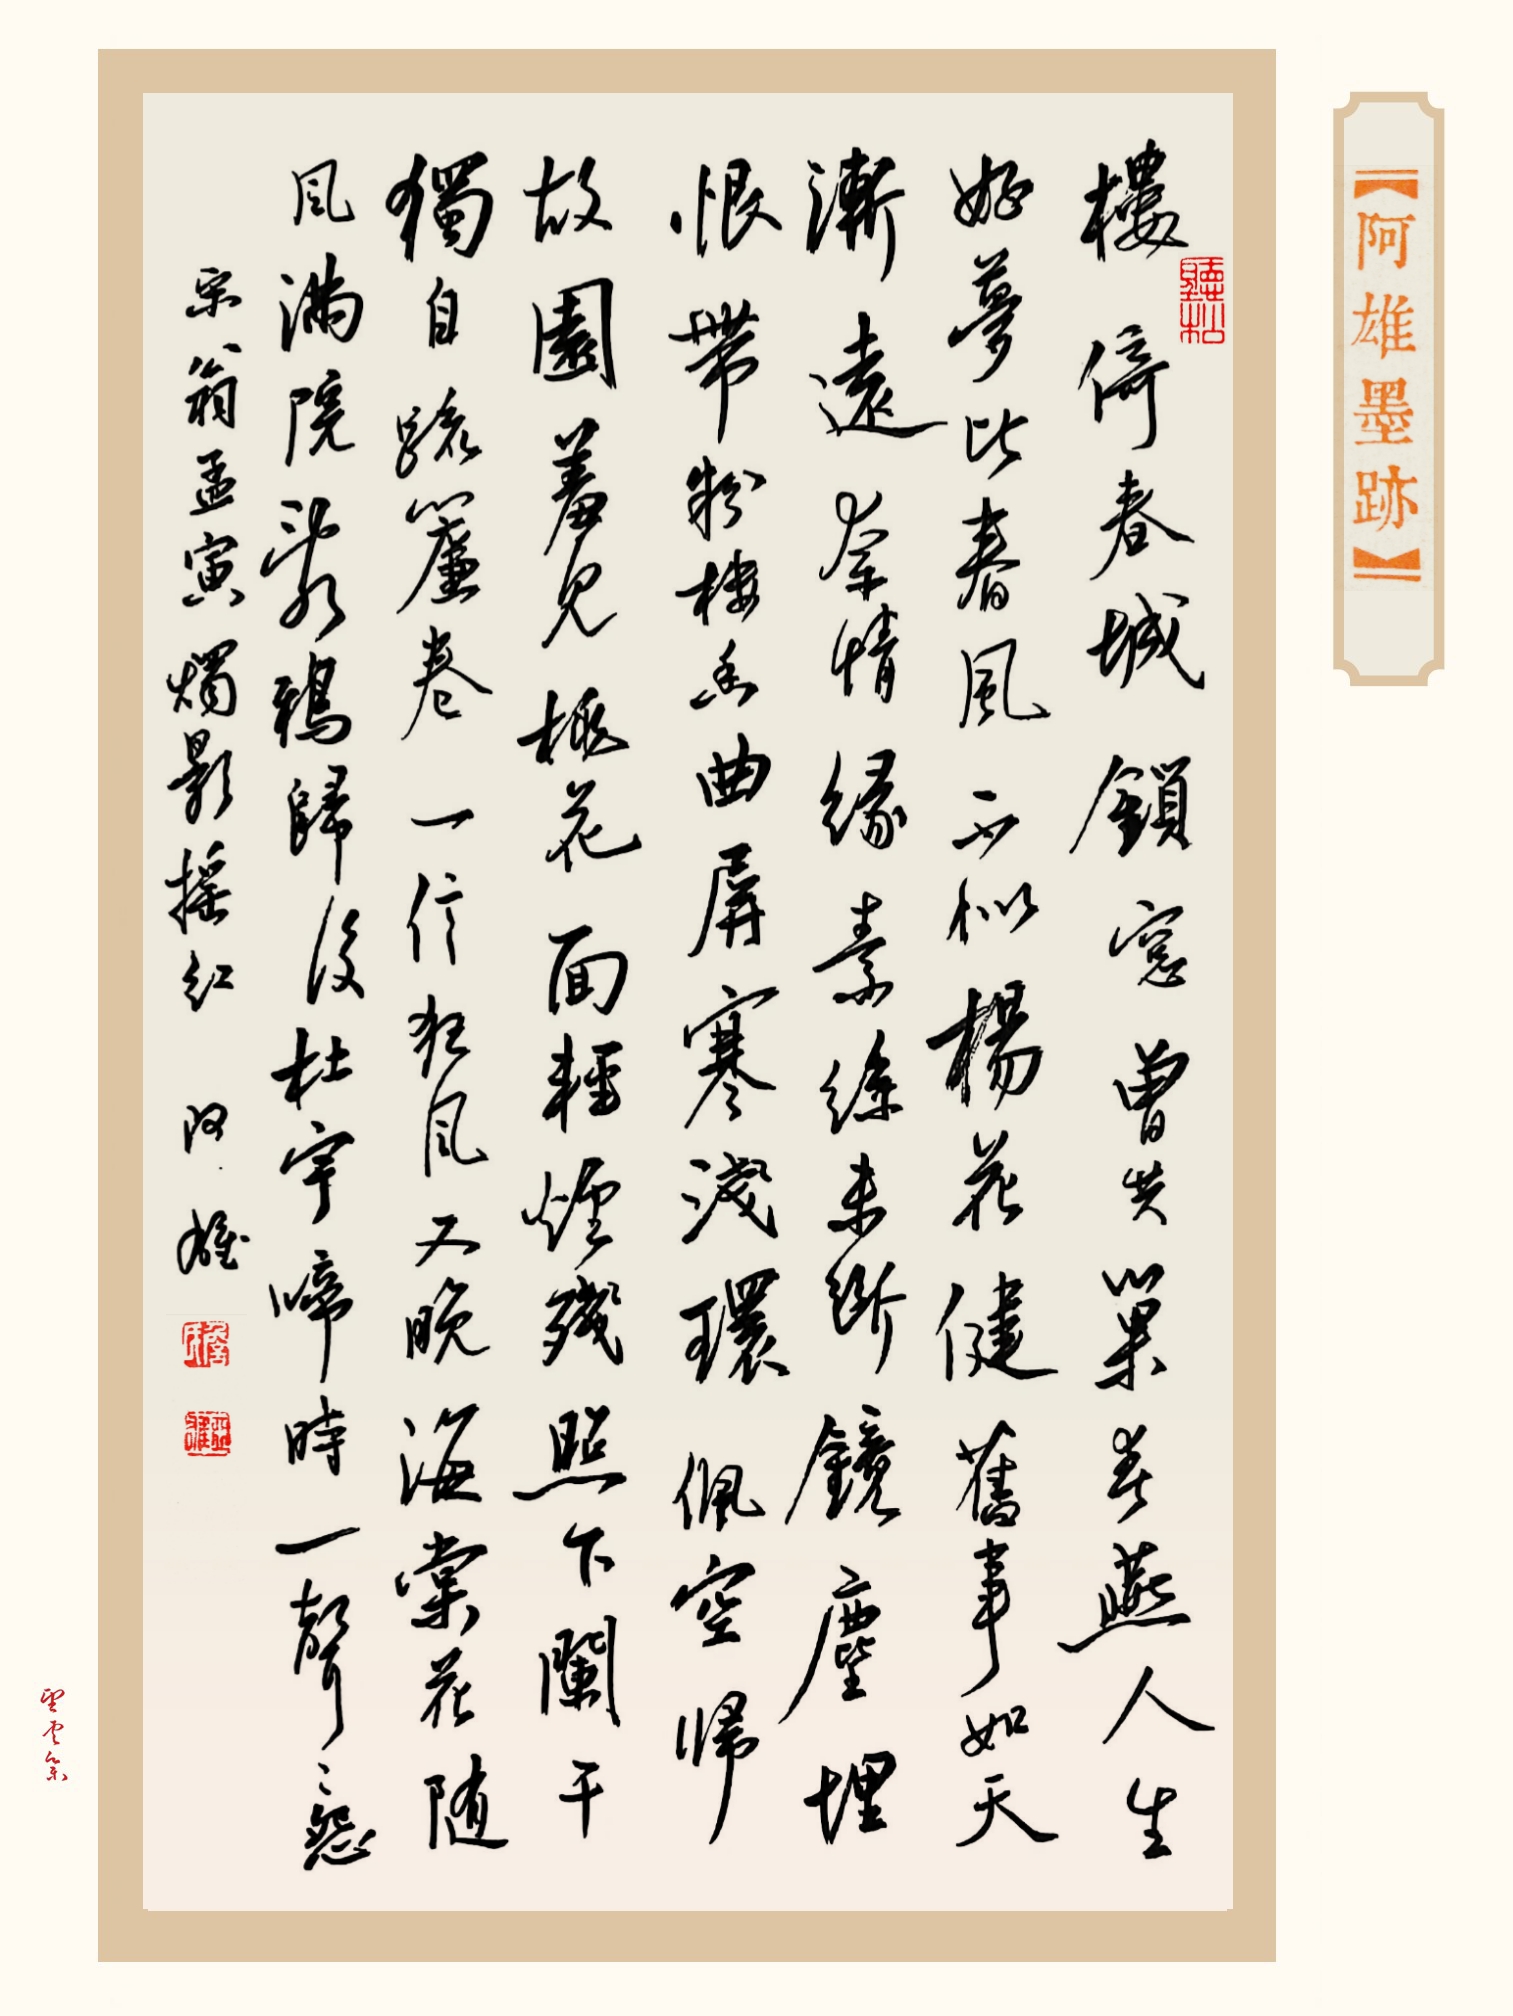 【阿雄墨跡】
聽松
樓倚春城鎖窓曾共巢春燕人生
好夢比春風不似楊花健舊事如天
漸遠奈情緣素絲未斷鏡塵埋
恨帶粉棲香曲屏寒淺環佩空歸
故園羞見桃花面輕煙殘照下闌干
獨自疏簾卷一信狂風又晚海棠花随
風滿院亂鴉歸後杜宇啼時一聲〻怨
宋翁孟寅燭影摇紅 阿雄